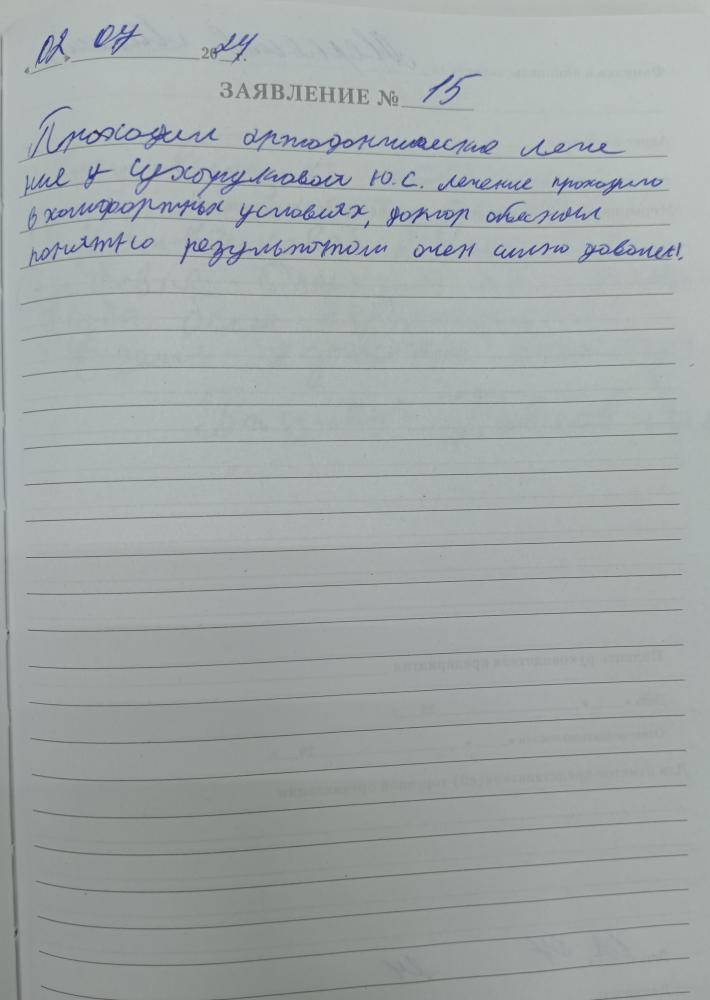 «02» 07 2024 г.
ЗАЯВЛЕНИЕ № 15
Проходил ортодонтическое лече
ние у Сухоруковой Ю.С. лечение проходило
в комфортных условиях, доктор объяснил
понятно результатом очен силно доволен.
Подпись руководителя предприятия